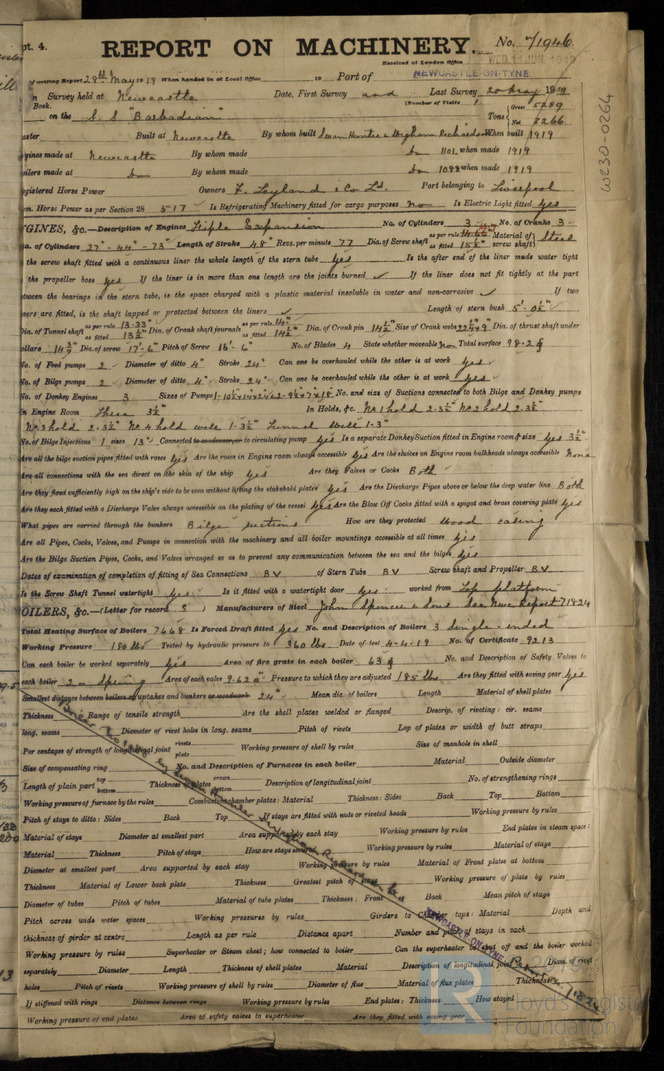 pt. 4. REPORT ON MACHINERY. No. 71946
Received at London Office WED. 11 JUN. 1919
of writing Report 28th May 1919 When handed in at Local Office 10 Port of NEWCASTLE-ON-TYNE
in Survey held at Newcastle Date, First Survey and Last Survey 20 May 1919
Book. (Number of Visits 1
on the S.S "Barbadian" Tons Gross 5289 Net 3266
aster Built at Newcastle By whom built Swan Hunter & Wigham Richardson When built 1919
gines made at Newcastle By whom made Do 1101 when made 1919
oilers made at Do By whom made Do 1088 when made 1919
gistered Horse Power Owners F. Leyland & Co Ld. Port belonging to Liverpool
om. Horse Power as per Section 28 517 Is Refrigerating Machinery fitted for cargo purposes No Is Electric Light fitted Yes
NGINES, &c.—Description of Engines Triple Expansion No. of Cylinders 3 No. of Cranks 3
a. of Cylinders 27" - 44" - 73" Length of Stroke 48" Revs. per minute 77 Dia. of Screw shaft as per rule as fitted 15½" Material of screw shaft Steel
the screw shaft fitted with a continuous liner the whole length of the stern tube Yes Is the after end of the liner made water tight
the propeller boss yes If the liner is in more than one length are the joints burned ✓ If the liner does not fit tightly at the part
tween the bearings in the stern tube, is the space charged with a plastic material insoluble in water and non-corrosive ✓ If two
ners are fitted, is the shaft lapped or protected between the liners ✓ Length of stern bush 5'-0½"
Dia. of Tunnel shaft as per rule 13.33" as fitted 13½" Dia. of Crank shaft journals as per rule 14" as fitted 14½" Dia. of Crank pin 14½" Size of Crank webs 22½ x 9" Dia. of thrust shaft under
ollars 14½" Dia. of screw 17'-6" Pitch of Screw 16'-6" No. of Blades 4 State whether moveable No Total surface 98.2 ft
No. of Feed pumps 2 Diameter of ditto 4" Stroke 24" Can one be overhauled while the other is at work Yes
No. of Bilge pumps 2 Diameter of ditto 4" Stroke 24" Can one be overhauled while the other is at work Yes
No. of Donkey Engines 3 Sizes of Pumps No. and size of Suctions connected to both Bilge and Donkey pumps
in Engine Room Three 3½" In Holds, &c. No 1 hold 2-3½" No 2 hold 2.3½"
No 3 hold 2-3½" No 4 hold well 1-3½" Tunnel well 1-3"
No. of Bilge Injections 1 sizes 13" Connected to condenser, or to circulating pump Yes Is a separate Donkey Suction fitted in Engine room & size Yes 3½"
Are all the bilge suction pipes fitted with roses Yes Are the roses in Engine room always accessible Yes Are the sluices on Engine room bulkheads always accessible None
Are all connections with the sea direct on the skin of the ship Yes Are they Valves or Cocks Both
Are they fixed sufficiently high on the ship's side to be seen without lifting the stokehold plates Yes Are the Discharge Pipes above or below the deep water line Both
Are they each fitted with a Discharge Valve always accessible on the plating of the vessel Yes Are the Blow Off Cocks fitted with a spigot and brass covering plate Yes
What pipes are carried through the bunkers Bilge suctions How are they protected Wood casing
Are all Pipes, Cocks, Valves, and Pumps in connection with the machinery and all boiler mountings accessible at all times Yes
Are the Bilge Suction Pipes, Cocks, and Valves arranged so as to prevent any communication between the sea and the bilges Yes
Dates of examination of completion of fitting of Sea Connections BV of Stern Tube BV Screw shaft and Propeller BV
Is the Screw Shaft Tunnel watertight Yes Is it fitted with a watertight door Yes worked from Top platform
OILERS, &c.—(Letter for record S) Manufacturers of Steel John Spencer & Sons See Newc Report 71824
Total Heating Surface of Boilers 7668 Is Forced Draft fitted Yes No. and Description of Boilers 3 Single-ended
Working Pressure 180 lbs Tested by hydraulic pressure to 360 lbs Date of test 4-4-19 No. of Certificate 9213
Can each boiler be worked separately Yes Area of fire grate in each boiler 63 ft No. and Description of Safety Valves to
each boiler 2 Spring Area of each valve 9.62 Pressure to which they are adjusted 185 lbs Are they fitted with easing gear Yes
Smallest distance between boilers or uptakes and bunkers or woodwork 24" Mean dia. of boilers Length Material of shell plates
Thickness Range of tensile strength Are the shell plates welded or flanged Descrip. of riveting: cir. seams
long. seams Diameter of rivet holes in long. seams Pitch of rivets Lap of plates or width of butt straps
Per centages of strength of longitudinal joint rivets plate Working pressure of shell by rules Size of manhole in shell
Size of compensating ring No. and Description of Furnaces in each boiler Material Outside diameter
Length of plain part top bottom Thickness of plates crown bottom Description of longitudinal joint No. of strengthening rings
Working pressure of furnace by the rules Combustion chamber plates: Material Thickness: Sides Back Top Bottom
Pitch of stays to ditto: Sides Back Top If stays are fitted with nuts or riveted heads Working pressure by rules
Material of stays Diameter at smallest part Area supported by each stay Working pressure by rules End plates in steam space:
Material Thickness Pitch of stays How are stays secured Working pressure by rules Material of stays
Diameter at smallest part Area supported by each stay Working pressure by rules Material of Front plates at bottom
Thickness Material of Lower back plate Thickness Greatest pitch of stays Working pressure of plate by rules
Diameter of tubes Pitch of tubes Material of tube plates Thickness: Front Back Mean pitch of stays
Pitch across wide water spaces Working pressures by rules Girders to Chamber tops: Material Depth and
thickness of girder at centre Length as per rule Distance apart Number and pitch of stays in each
Working pressure by rules Superheater or Steam chest; how connected to boiler Can the superheater be shut off and the boiler worked
separately Diameter Length Thickness of shell plates Material Description of longitudinal joint Diam. of rivet
holes Pitch of rivets Working pressure of shell by rules Diameter of flue Material of flue plates Thickness
If stiffened with rings Distance between rings Working pressure by rules End plates: Thickness How stayed
Working pressure of end plates Area of safety valves to superheater Are they fitted with easing gear
NEWCASTLE-ON-TYNE Report 71824
W230-0264
Lloyd's Register
Foundation